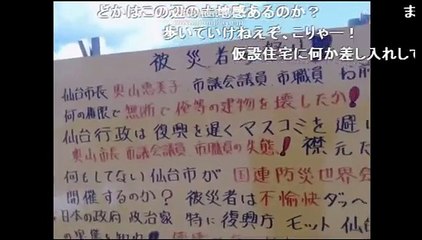 どかはこの辺の土地感あるのか？
ま
歩いていけねえぞ。こりゃー！
仮設住宅に何か差し入れして
被災者
仙台市長 奥山恵美子 市議会議員 市職員 お前
何の権限で無断で俺等の建物を壊したか！
仙台行政は復興を遅くマスコミを避い
奥山市長 市議会議員 市職員の失態！ 襟元だ
何もしてない仙台市が 国連防災世界会
開催するのか？ 被災者は不愉快ダッヘ
日本の政府 政治家 特に復興庁 モット仙台